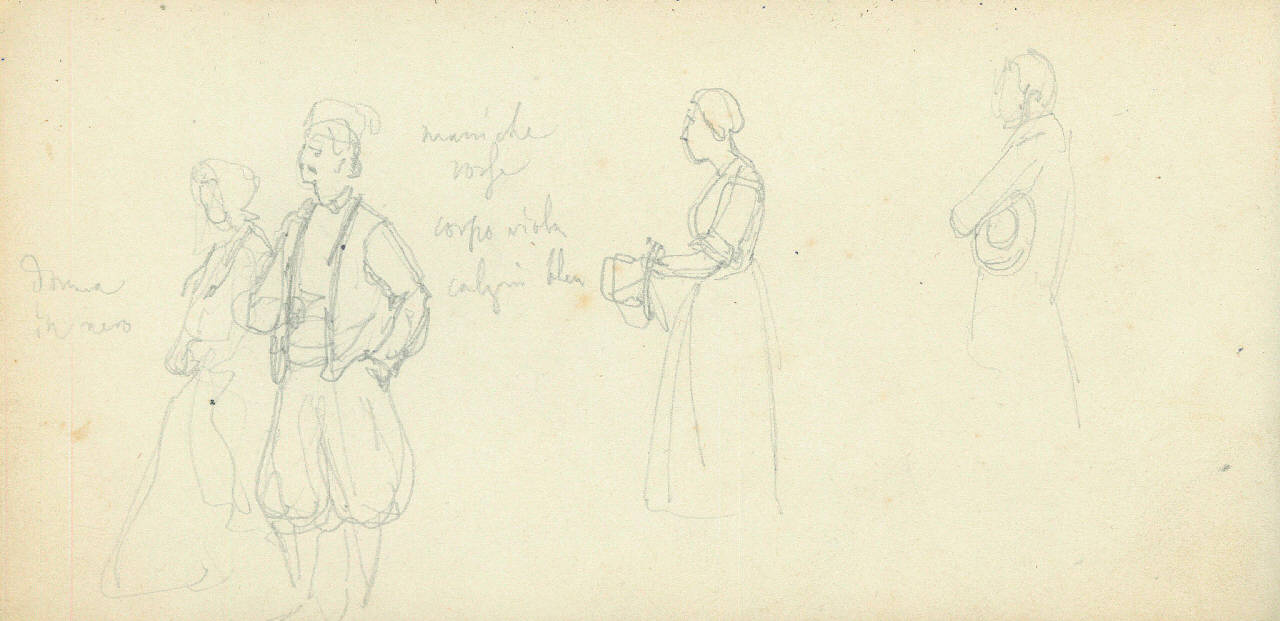 donna
in nero
maniche
rosse
corpo viola
calzoni bleu